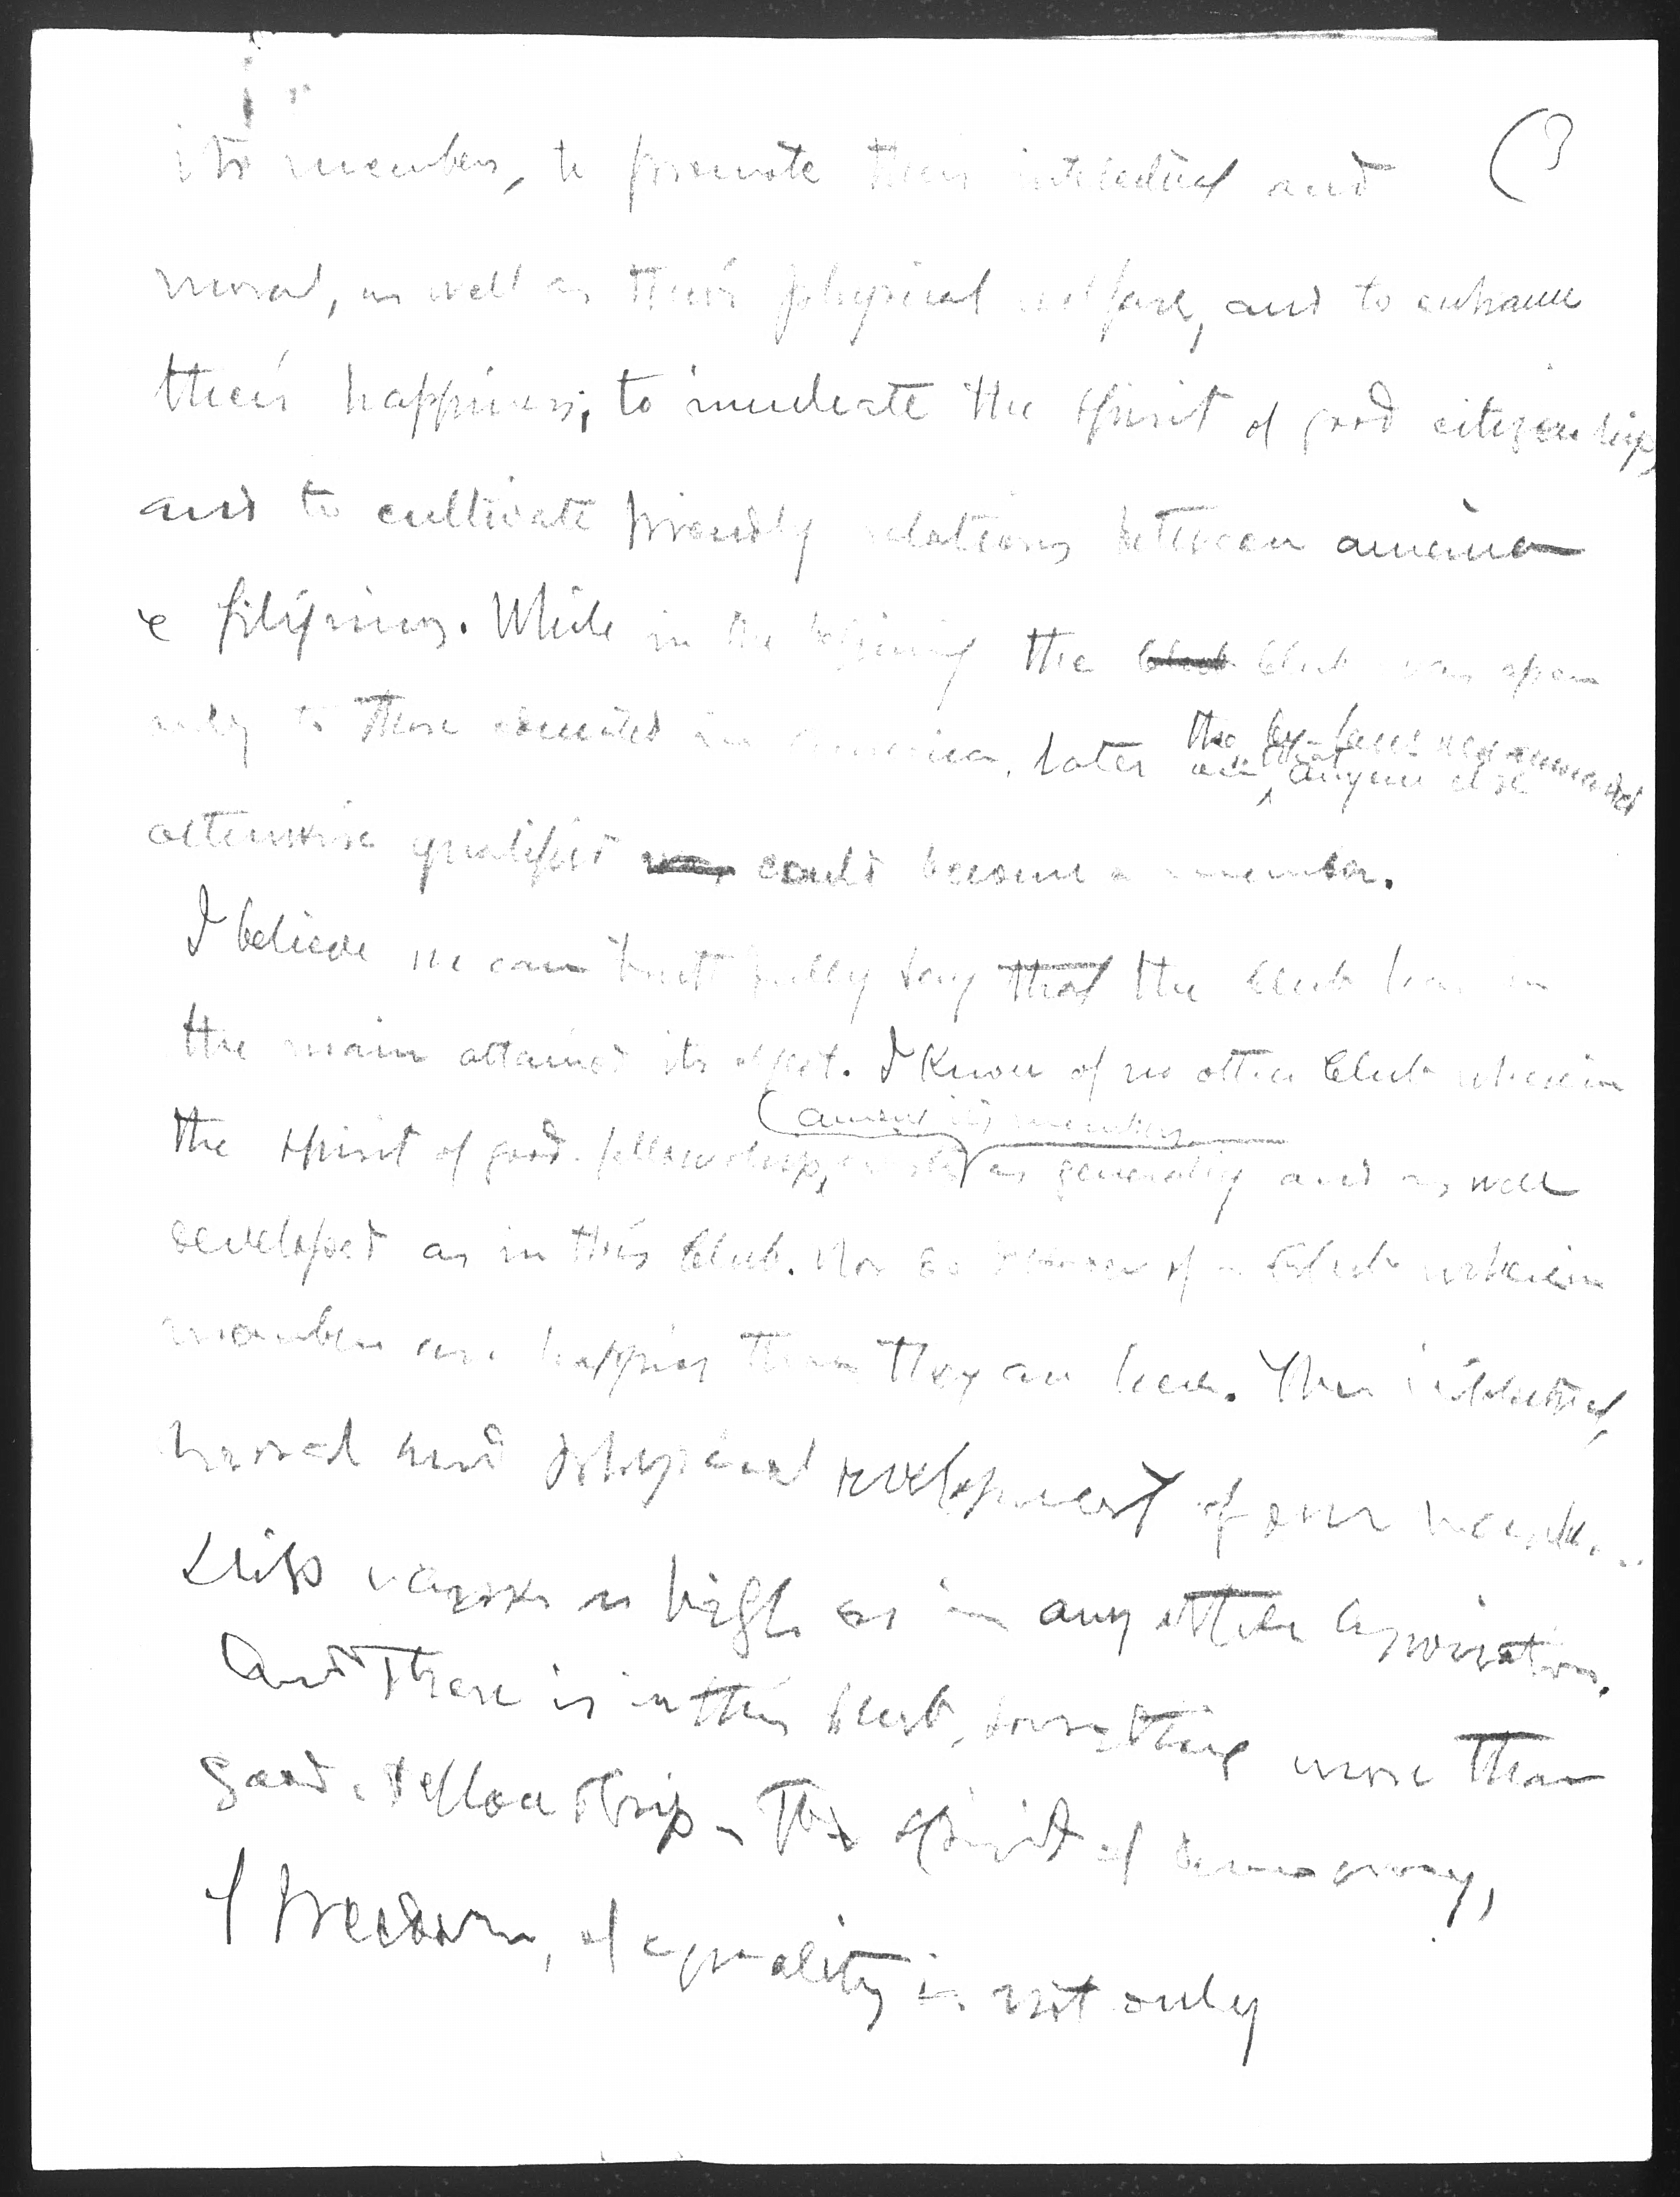 (3
its members, to promote their intellectual and
moral, as well as their physical welfare, and to enhance
their happiness; to inculcate the spirit of good citizenship,
and to cultivate friendly relations between america
& filipinos. While in the beginning the club Club was open
only to those educated in America, later
the by-laws were amended
that anyone else
otherwise qualified was could become a member.
I believe we can truthfully say that the Club has in
the main attained its object. I know of no other Club wherein
(among its members
the spirit of good-fellowship, exists as generally and as well
developed as in this Club. Nor do I know of a Club wherein
members are happier than they are here. The intellectual,
moral and physical development of our member
ship as high as in any other association.
And there is in this Club, something more than
good-fellowship - The spirit of democracy,
of freedom, of equality is not only